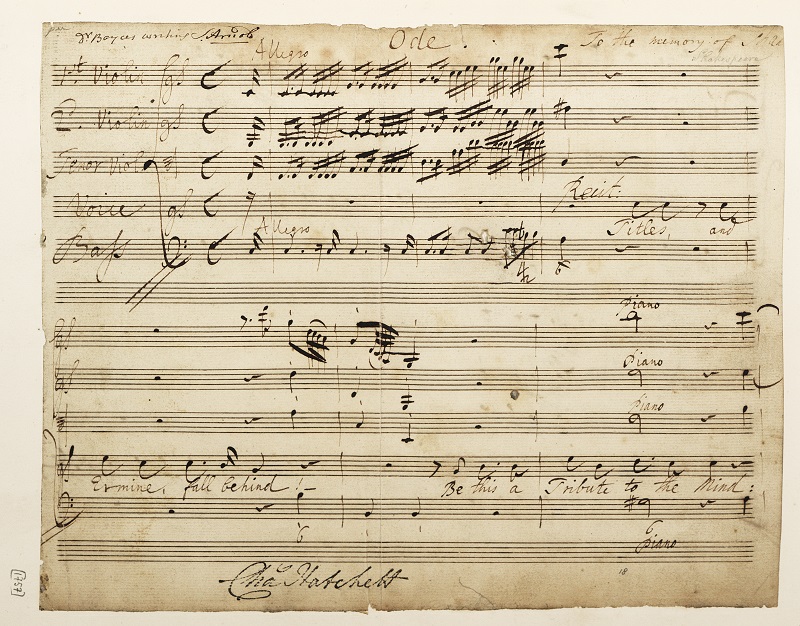 Ode
To the memory of
Shakespeare
Allegro
1st Violin
2d. Violin
Tenor Viol
Voice
Recit:
Titles, and
Bass
Allegro
Piano
Piano
Piano
Ermine, fall behind! — Be this a Tribute to the Mind:
6
6
Piano
Chas Hatchett
18
[1757]